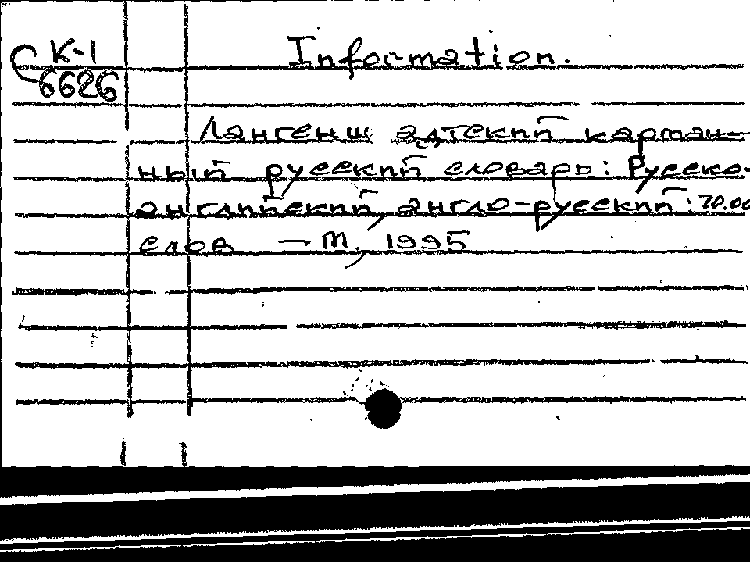 К-1
6626
Information.
Лангенш адтский карман-
ный русский словарь: Русско-
английский, англо-русский: 70.00
слов — М, 1995